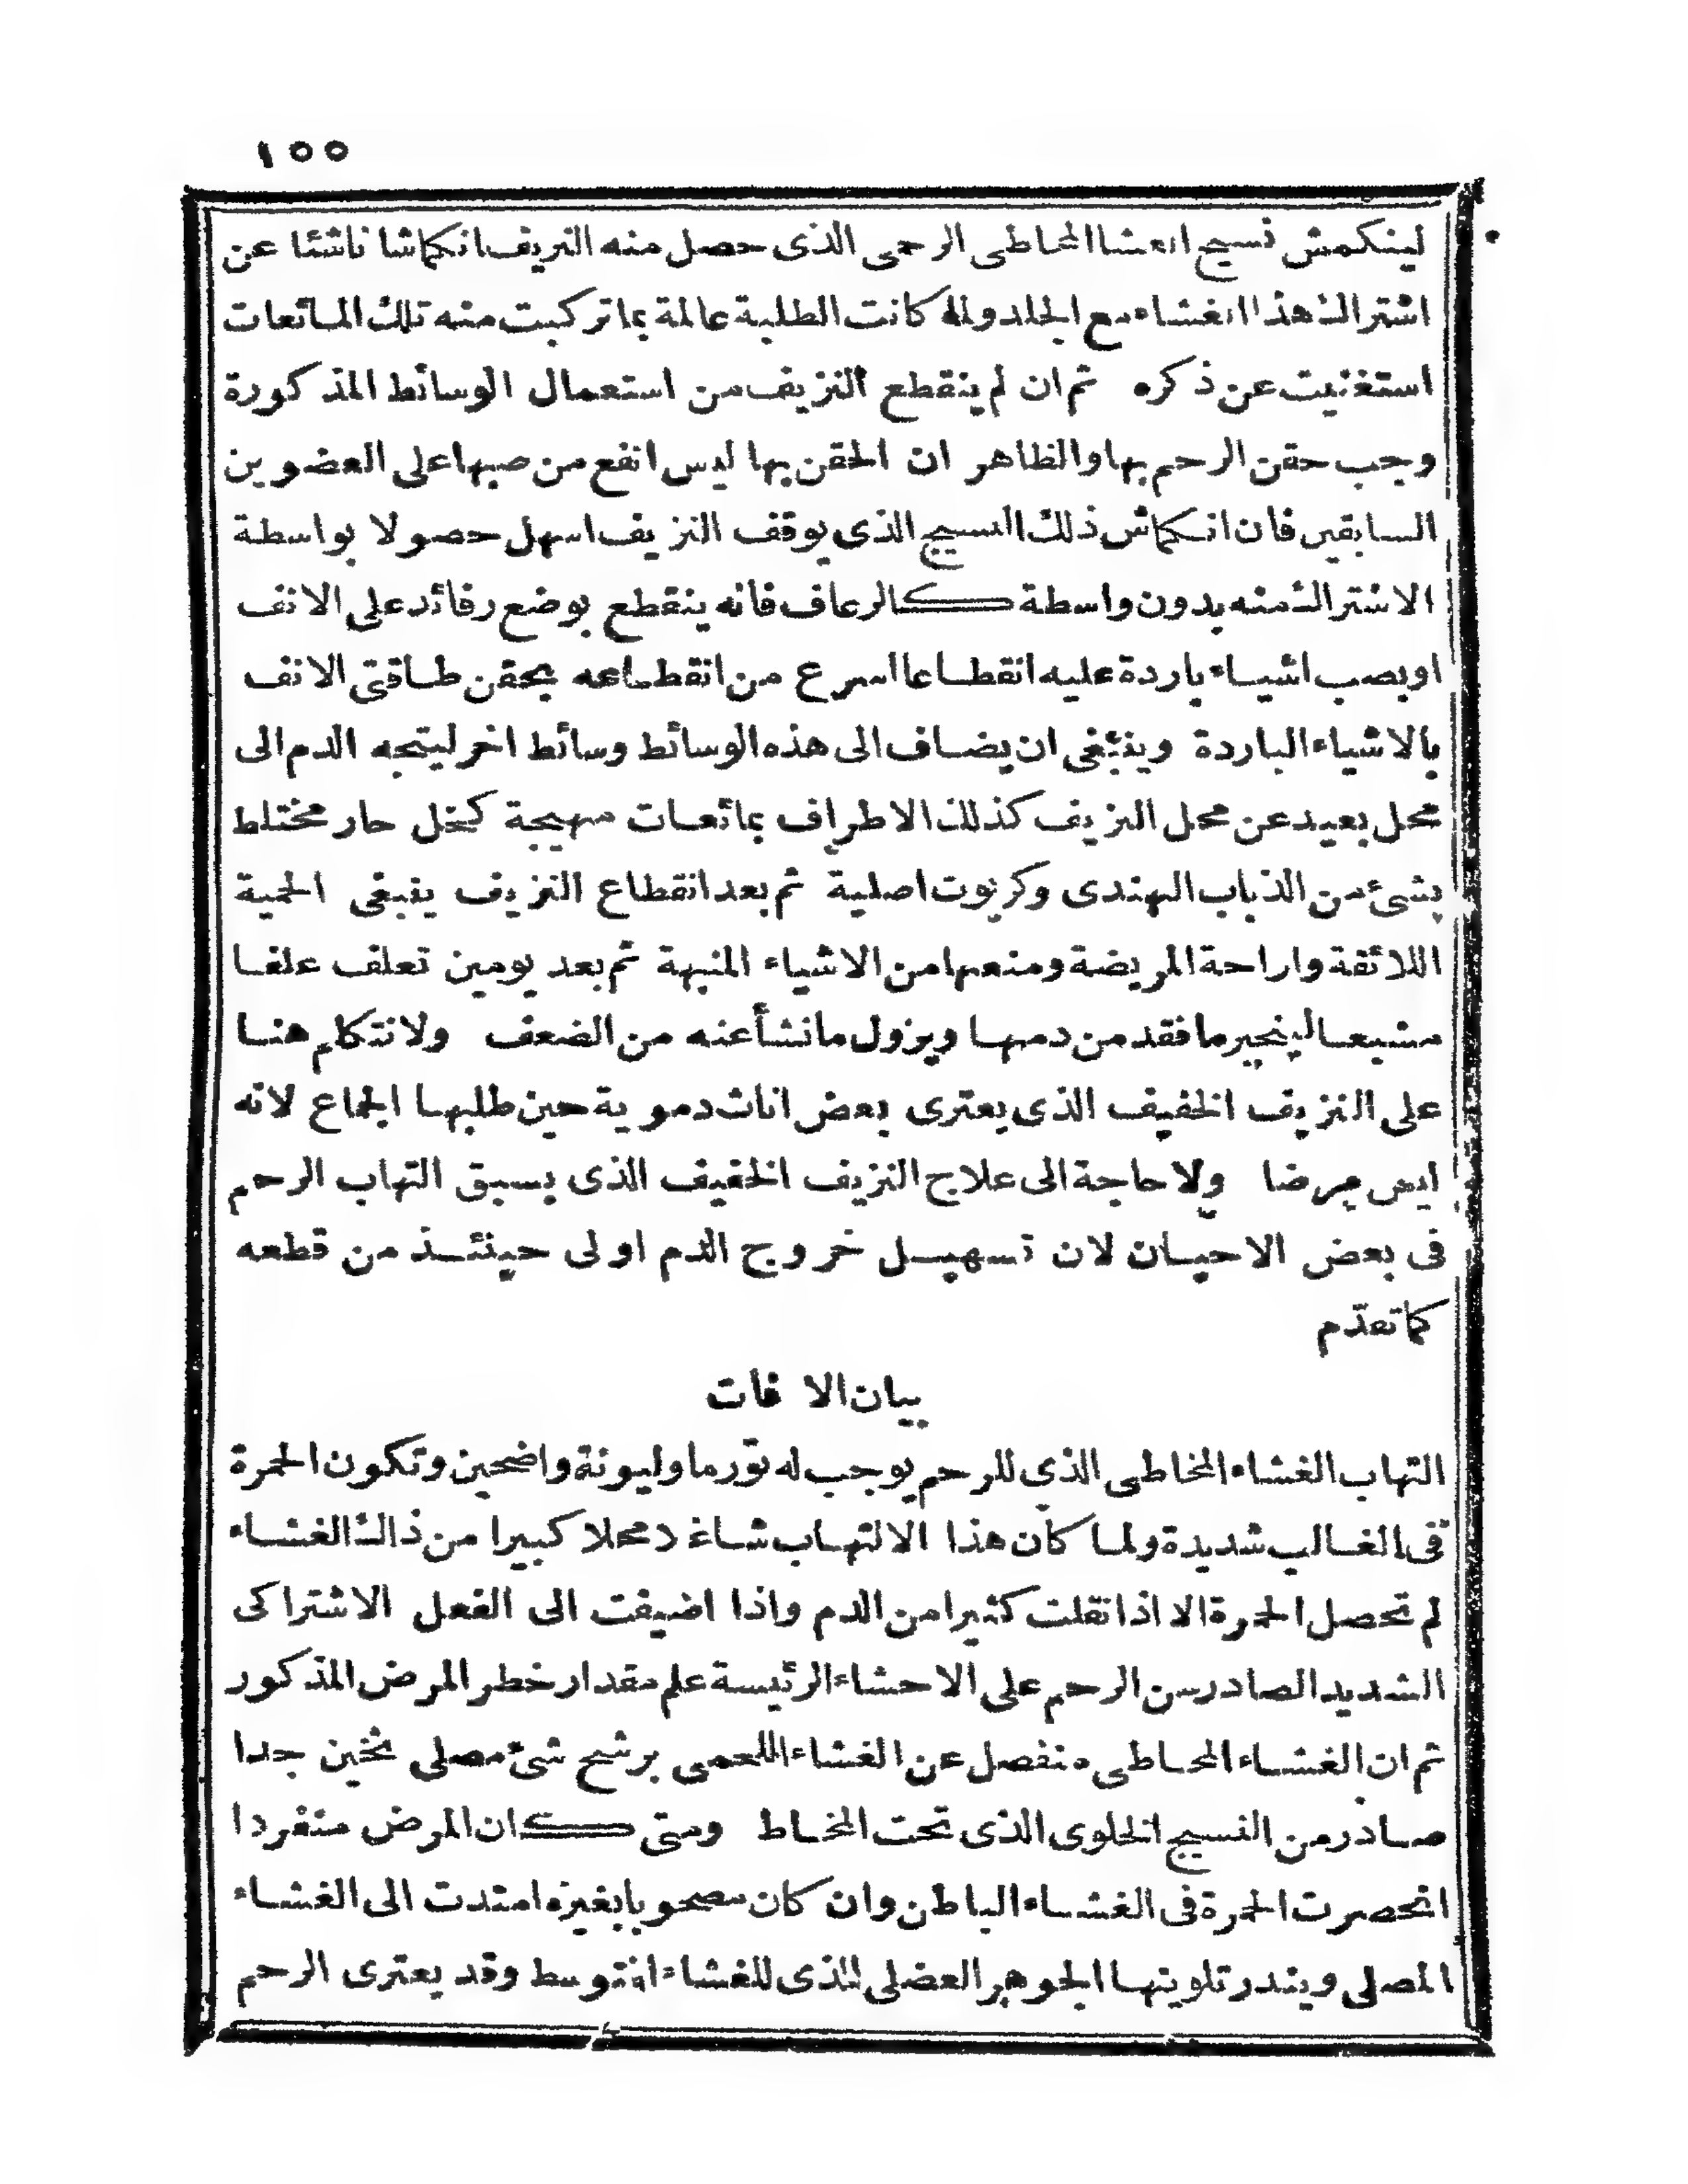 ١٥٥
لينكمش نسيج الغشا المخاطى الرحمى الذى حصل منه النزيف انكماشا ناشئا عن
اشتراك هذا الغشاء مع الجلد ولما كانت الطلبة عالمة بما تركبت منه تلك المائعات
استغنيت عن ذكره ثم ان لم ينقطع النزيف من استعمال الوسائط المذكورة
وجب حقن الرحم بها والظاهر ان الحقن بها ليس انفع من صبها على العضوين
السابقين فان انكماش ذلك النسيج الذى يوقف النزيف اسهل حصولا بواسطة
الاشتراك منه بدون واسطة كالرعاف فانه ينقطع بوضع رفائد على الانف
او بصب اشياء باردة عليه انقطاعا اسرع من انقطاعه بحقن طاقتى الانف
بالاشياء الباردة وينبغى ان يضاف الى هذه الوسائط وسائط اخر ليتجه الدم الى
محل بعيد عن محل النزيف كذلك الاطراف بمائعات مهيجة كخل حار مختلط
بشئ من الذباب الهندى وكزيوت اصلية ثم بعد انقطاع النزيف ينبغى الحمية
اللائقة واراحة المريضة ومنعها من الاشياء المنبهة ثم بعد يومين تعلف علفا
مشبعا لينجبر ما فقد من دمها ويزول ما نشأ عنه من الضعف ولا نتكلم هنا
على النزيف الخفيف الذى يعترى بعض اناث دموية حين طلبها الجماع لانه
ليس مرضا ولا حاجة الى علاج النزيف الخفيف الذى يسبق التهاب الرحم
فى بعض الاحيان لان تسهيل خروج الدم اولى حينئذ من قطعه
كما تقدّم
بيان الافات
التهاب الغشاء المخاطى الذى للرحم يوجب له تورما وليونة واضحين وتكون الحمرة
فى الغالب شديدة ولما كان هذا الالتهاب شاغلا محلا كبيرا من ذالك الغشاء
لم تحصل الحمرة الا اذا نقلت كثيرا من الدم واذا اضيفت الى الفعل الاشتراكى
الشديد الصادر من الرحم على الاحشاء الرئيسة علم مقدار خطر المرض المذكور
ثم ان الغشاء المخاطى منفصل عن الغشاء اللحمى برشح شئ مصلى ثخين جدا
صادر من النسيج الخلوى الذى تحت المخاط ومتى كان المرض منفردا
انحصرت الحمرة فى الغشاء الباطن وان كان مصحوبا بغيره امتدت الى الغشاء
المصلى ويندر تلوينها الجوهر العضلى الذى للغشاء المتوسط وقد يعترى الرحم